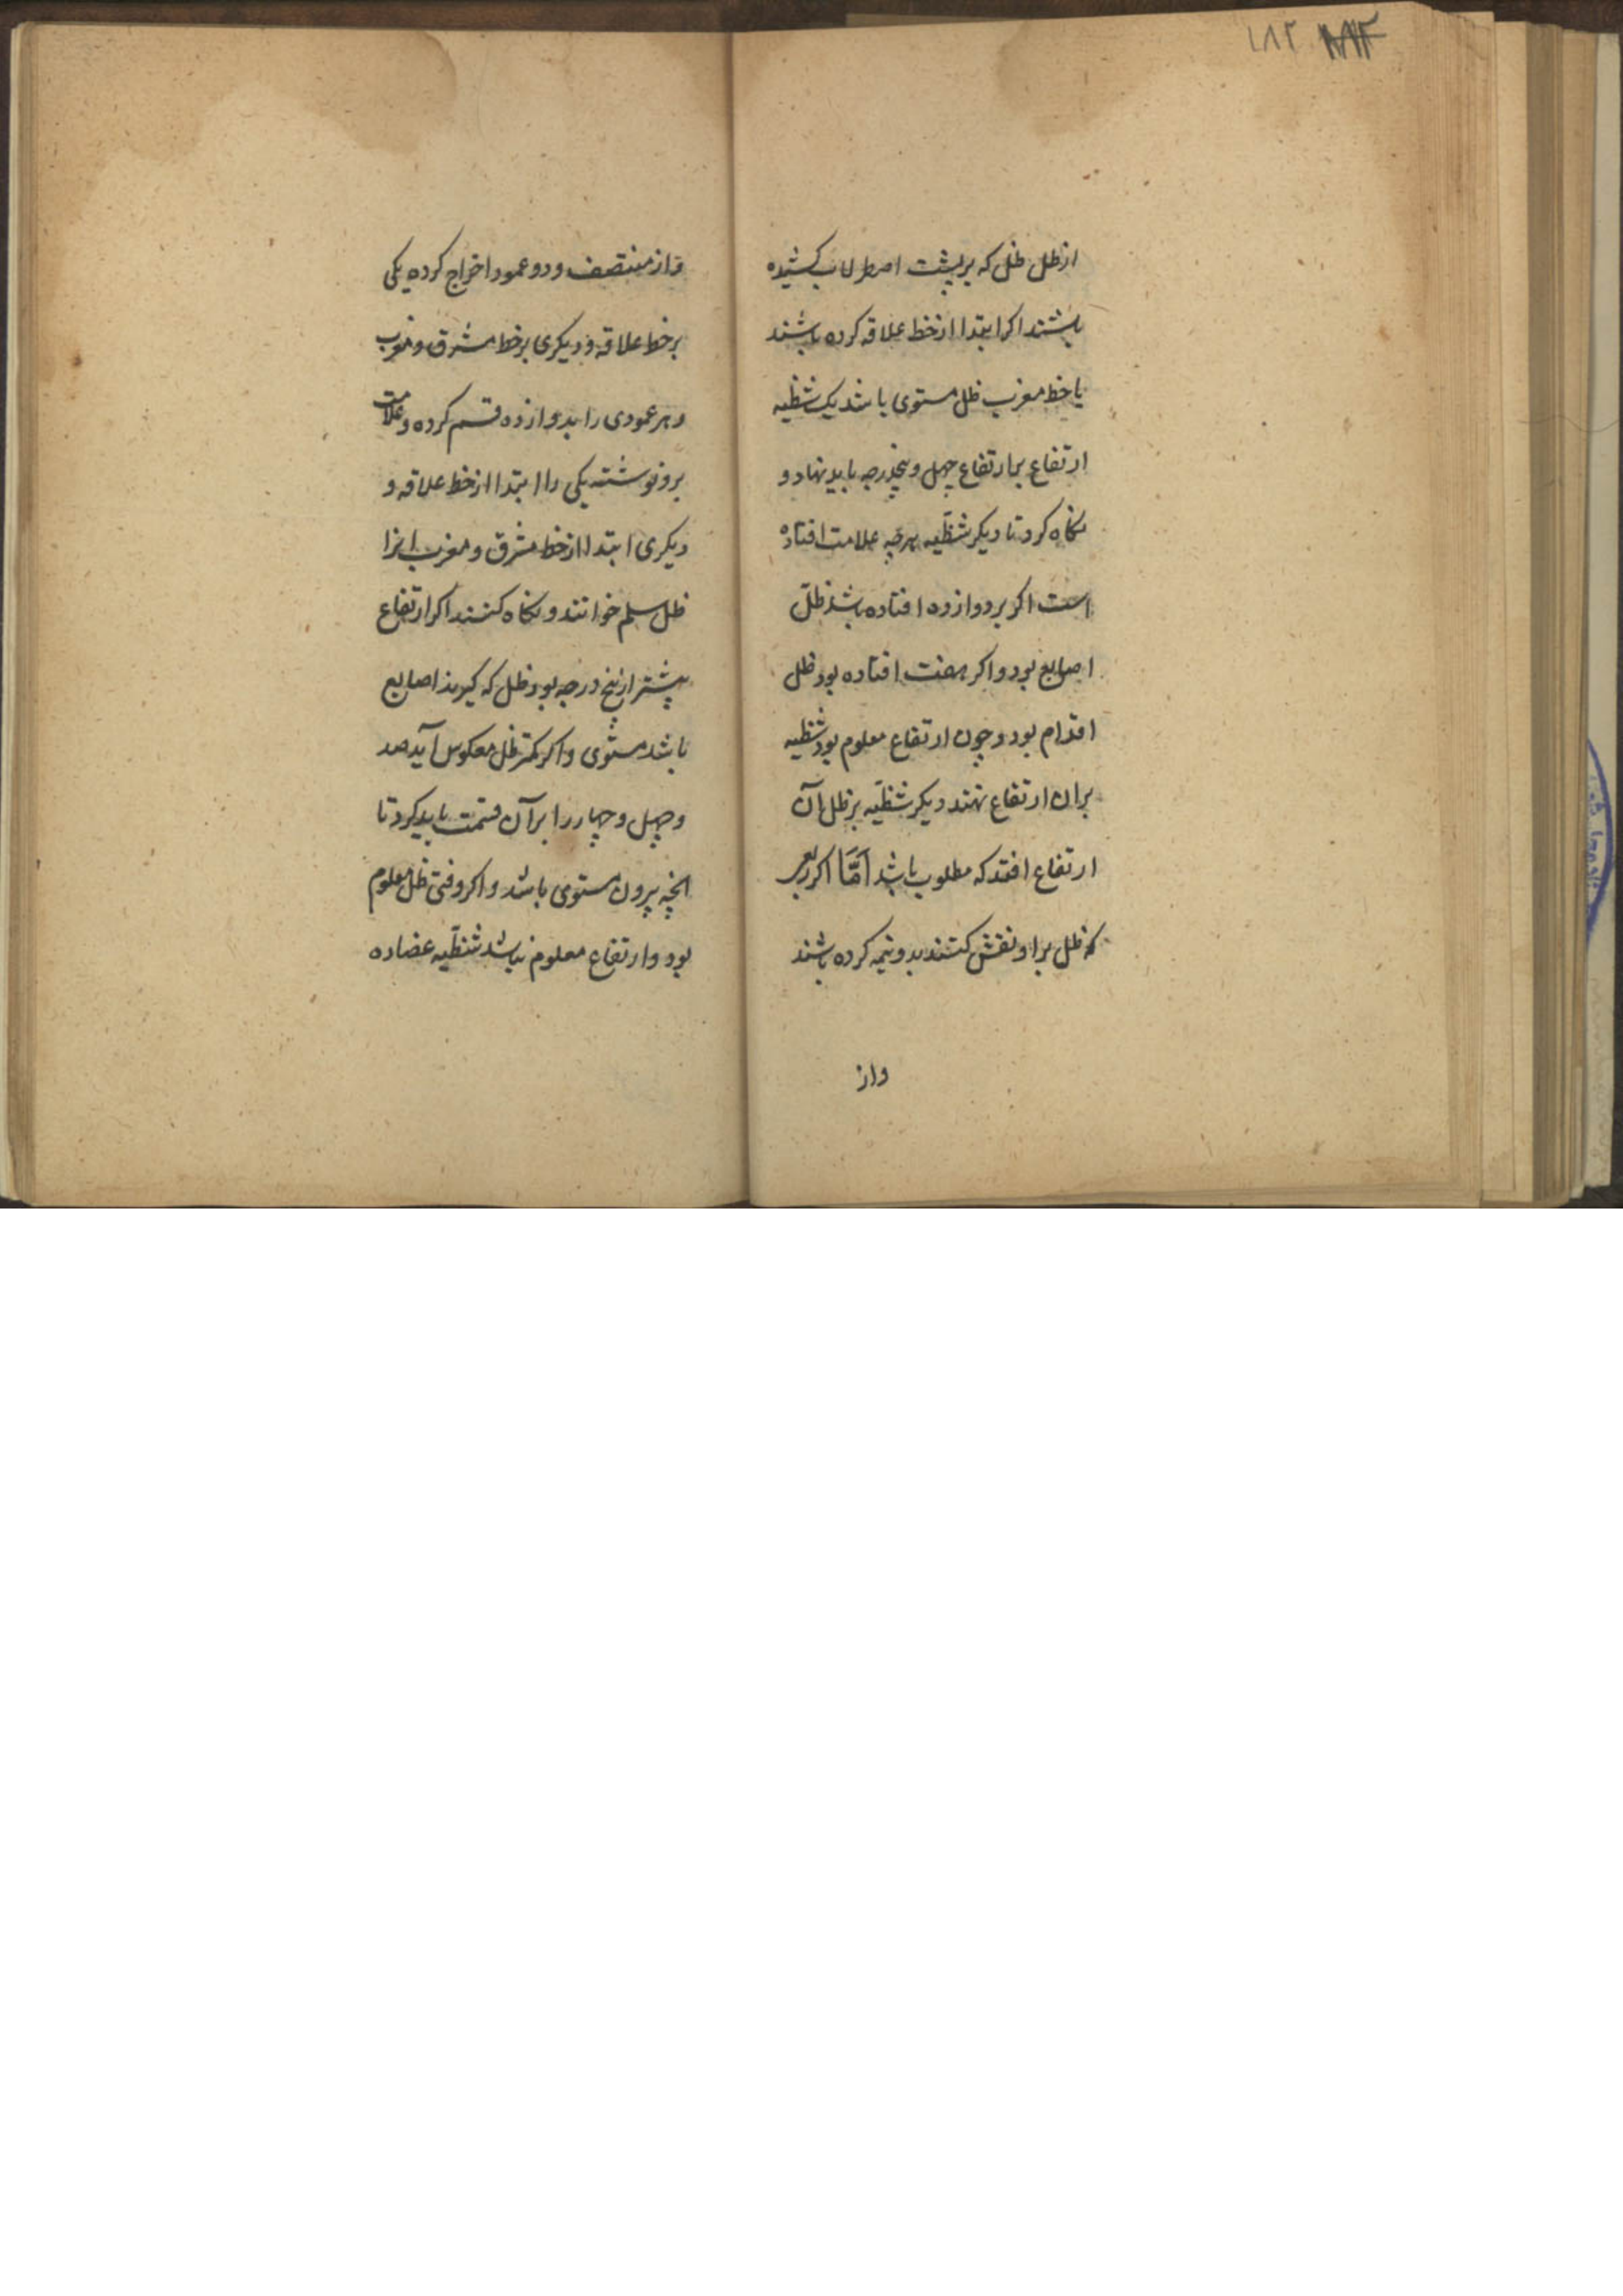 ۱۸۲
از ظل ظل که بر پشت اصطرلاب کشیده
باشند اکر ابتدا از خط علاقه کرده باشند
یا خط مغرب ظل مستوی باشد یک شظیه
ارتفاع بر ارتفاع چهل و پنجدرجه باید نهاد و
نکاه کرد تا دیکر شظیه بر چه علامت افتاده
است اکر بر دوازده افتاده باشد ظل
اصابع بود و اکر بهفت افتاده بود ظل
اقدام بود و چون ارتفاع معلوم بود شظیه
بران ارتفاع نهند دیکر شظیه بر ظل آن
ارتفاع افتد که مطلوب باشد امّا اکر ربعی
که ظل برا و نقش کنند بدو نیمه کرده باشند
واز
واز منتصف و دو عمود اخراج کرده یکی
بر خط علاقه و دیکری بر خط مشرق و مغرب
و هر عمودی را بدوازده قسم کرده و علامت
برو نوشته یکی را ابتدا از خط علاقه و
دیکری ابتدا از خط مشرق و مغرب انرا
ظل سلم خوانند و نکاه کنند اکر ارتفاع
پیشتر از پنج درجه بود ظل که کیرند اصابع
باشد مستوی و اکر کمتر ظل معکوس آید صد
و چهل و چهار را بر آن قسمت باید کرد تا
انچه بیرون مستوی باشد و اکر وقتی ظل معلوم
بود و ارتفاع معلوم نباشد شظیه عضاده